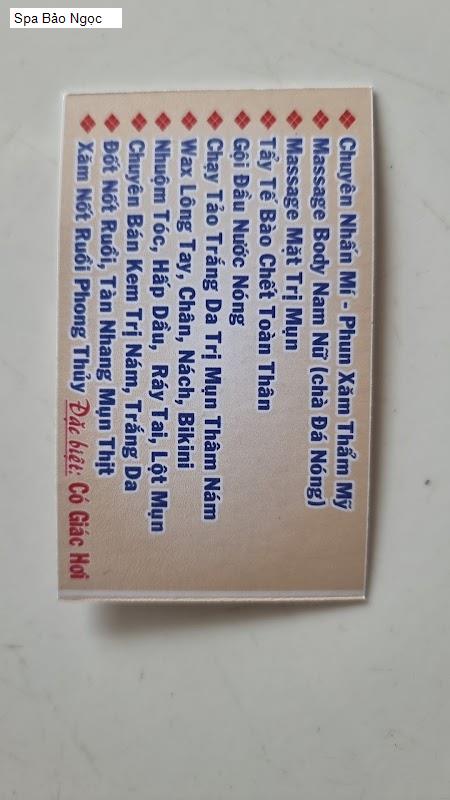 Spa Bảo Ngọc
Chuyên Nhấn Mí - Phun Xăm Thẩm Mỹ
Massage Body Nam Nữ (chà Đá Nóng)
Massage Mặt Trị Mụn
Tẩy Tế Bào Chết Toàn Thân
Gội Đầu Nước Nóng
Chạy Tảo Trắng Da Trị Mụn Thâm Nám
Wax Lông Tay, Chân, Nách, Bikini
Nhuộm Tóc, Hấp Dầu, Ráy Tai, Lột Mụn
Chuyên Bán Kem Trị Nám, Trắng Da
Đốt Nốt Ruồi, Tàn Nhang Mụn Thịt
Xăm Nốt Ruồi Phong Thủy Đặc biệt: Có Giác Hơi